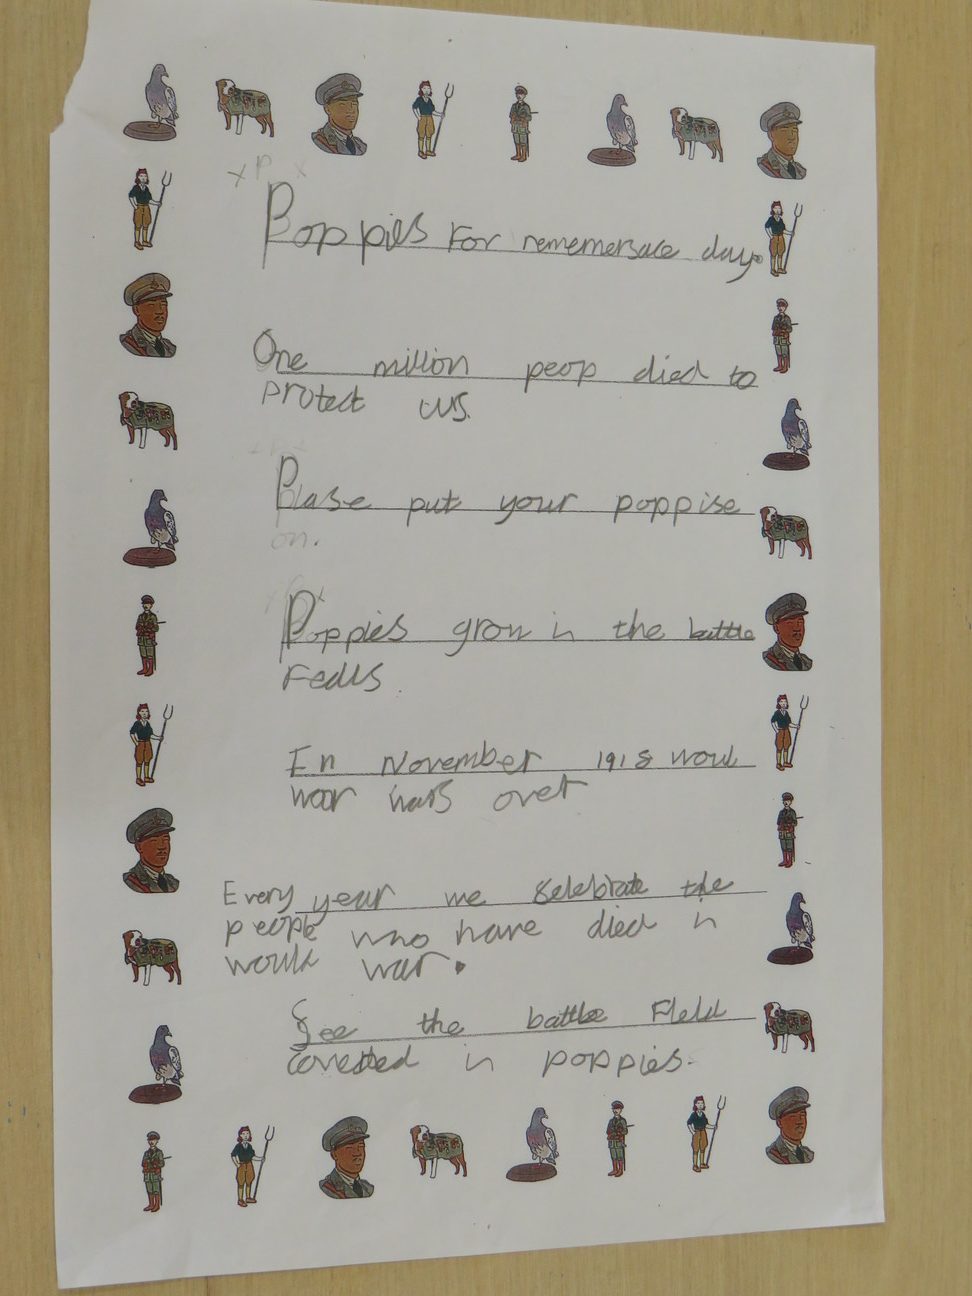 Poppies For rememersace day.
One million peop died to
protect us.
Plase put your poppise
on.
Poppies grow in the battle
Fedls.
In November 1918 woul
woor wars over
Every year we selebrate the
people who have died in
would war.
See the battle Field
coverted in poppies.